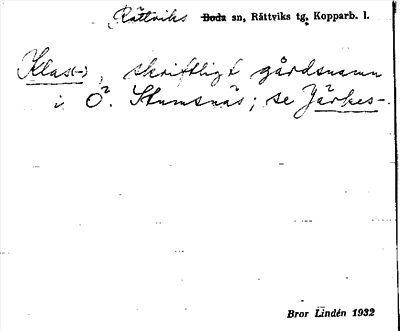 Rättviks Boda sn, Rättviks tg, Kopparb. l.
Klas(-), skriftligt gårdsnamn
i Ö². Stumsnäs; se Järkes-.
Bror Lindén 1932